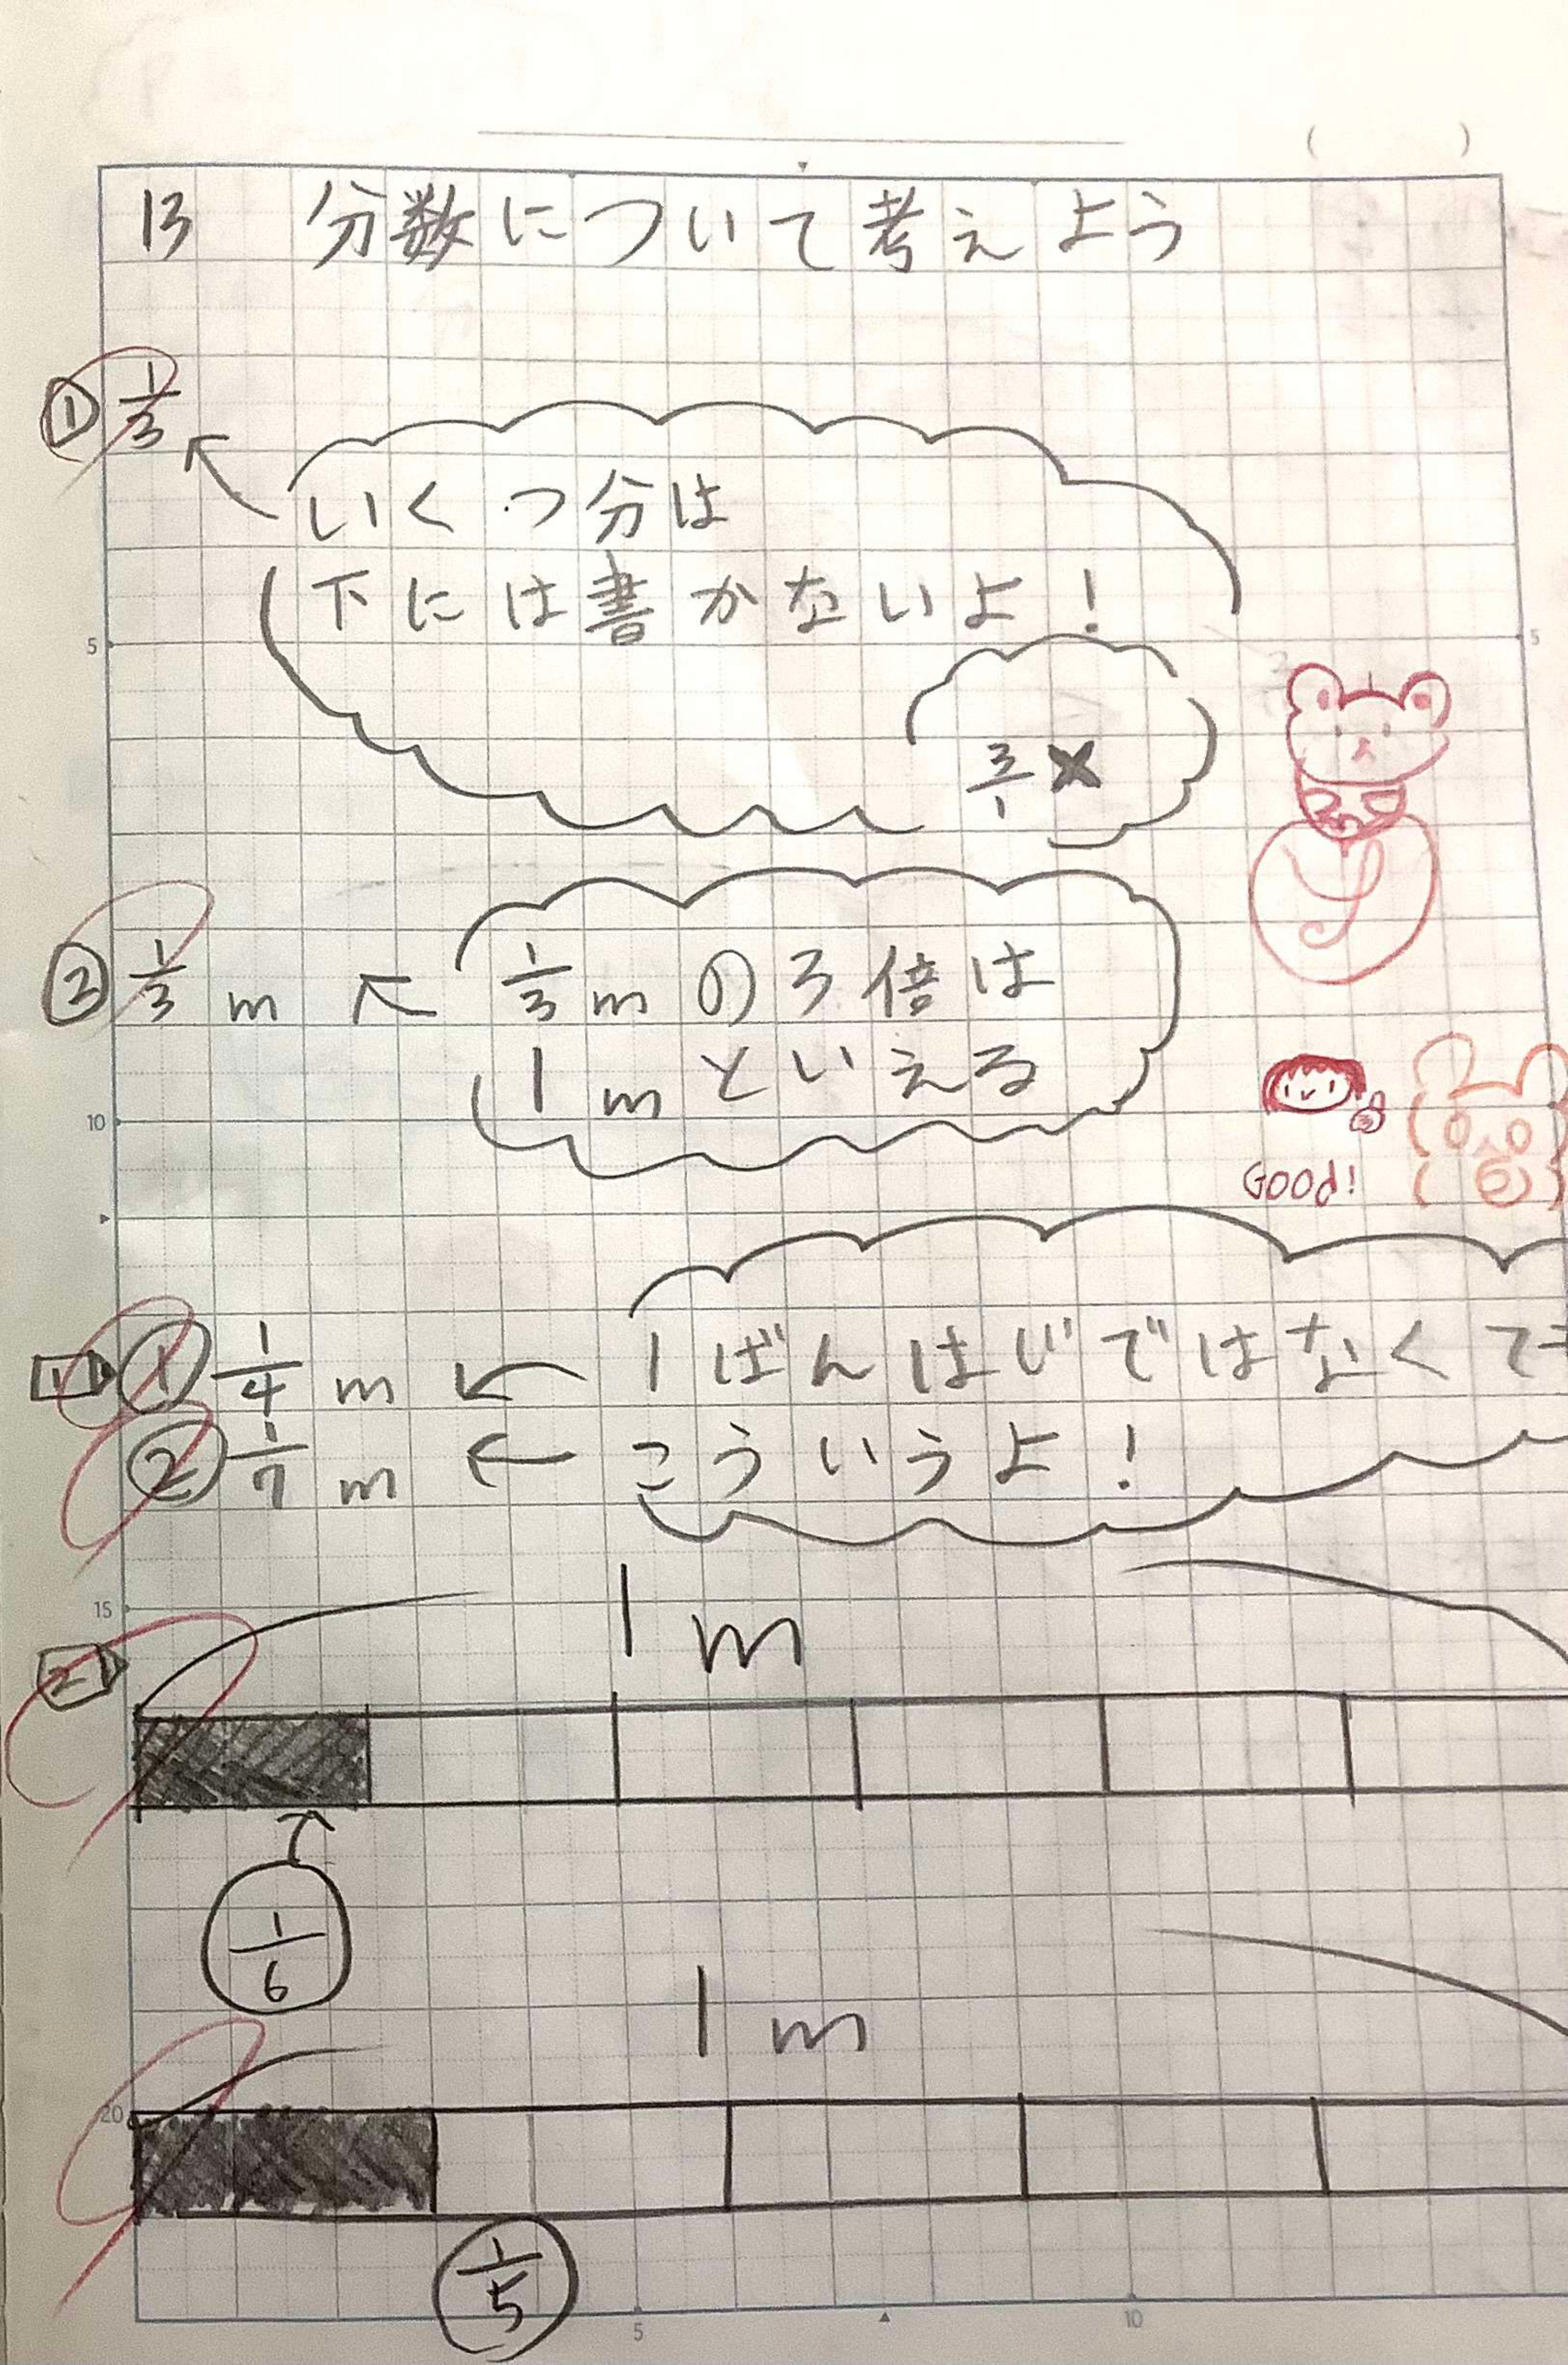 13 分数について考えよう
① 1/3
いくつ分は
下には書かないよ!
3/1 ×
② 1/3 m ← 1/3 m の 3 倍は
1 m といえる
Good!
1 ① 1/4 m ← 1ばんはじではなくても
② 1/7 m ← こういうよ!
1 m
2
1/6
1 m
1/5
5
10
15
20
5
5
10